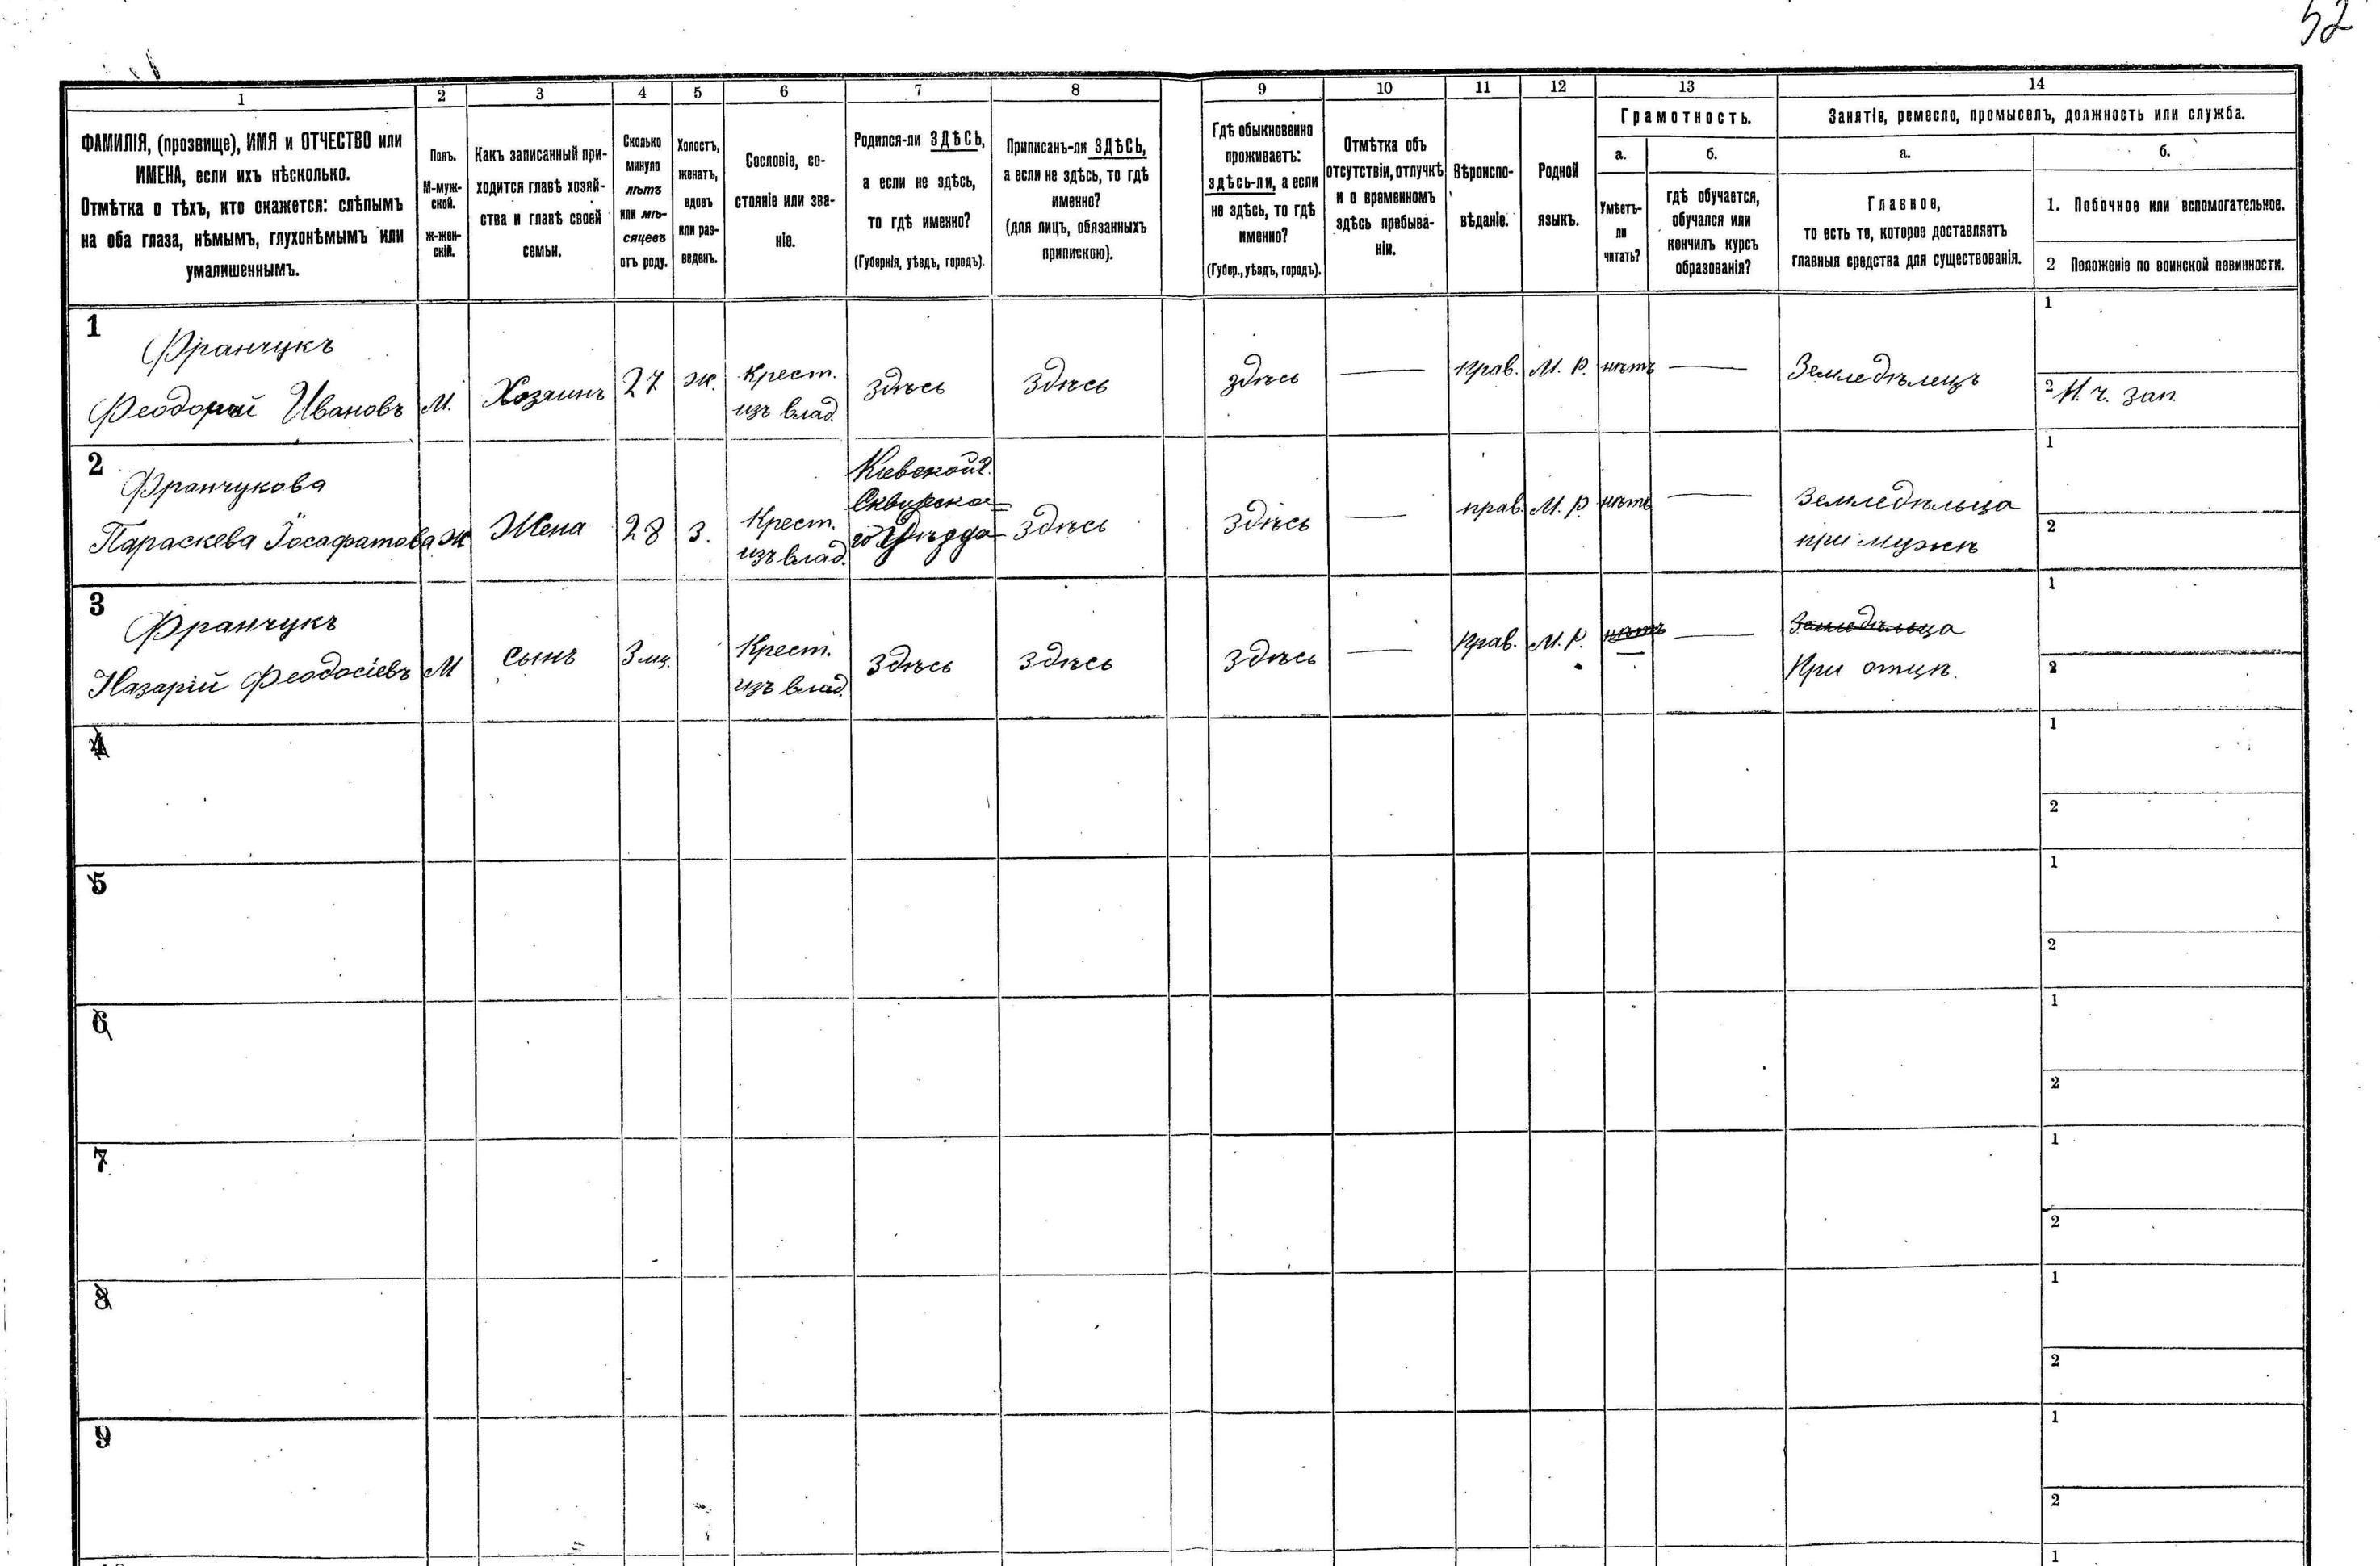 52
1 2 3 4 5 6 7 8 9 10 11 12 13 14
ФАМИЛІЯ, (прозвище), ИМЯ и ОТЧЕСТВО или
ИМЕНА, если ихъ нѣсколько.
Отмѣтка о тѣхъ, кто окажется: слѣпымъ
на оба глаза, нѣмымъ, глухонѣмымъ или
умалишеннымъ.
Полъ.
М-муж-
ской.
ж-жен-
скій.
Какъ записанный при-
ходится главѣ хозяй-
ства и главѣ своей
семьи.
Сколько
минуло
лѣтъ
или мѣ-
сяцевъ
отъ роду.
Холостъ,
женатъ,
вдовъ
или раз-
веденъ.
Сословіе, со-
стояніе или зва-
ніе.
Родился-ли ЗДѢСЬ,
а если не здѣсь,
то гдѣ именно?
(Губернія, уѣздъ, городъ).
Приписанъ-ли ЗДѢСЬ,
а если не здѣсь, то гдѣ
именно?
(для лицъ, обязанныхъ
припискою).
Гдѣ обыкновенно
проживаетъ:
здѣсь-ли, а если
не здѣсь, то гдѣ
именно?
(Губер., уѣздъ, городъ).
Отмѣтка объ
отсутствіи, отлучкѣ
и о временномъ
здѣсь пребыва-
ніи.
Вѣроиспо-
вѣданіе.
Родной
языкъ.
Грамотность.
а.
Умѣетъ-
ли
читать?
б.
гдѣ обучается,
обучался или
кончилъ курсъ
образованія?
Занятіе, ремесло, промыселъ, должность или служба.
а.
Главное,
то есть то, которое доставляетъ
главныя средства для существованія.
б.
1. Побочное или вспомогательное.
2 Положеніе по воинской повинности.
1
Франчукъ
Ивановъ
М.
Хозаинъ
27
ж.
Крест.
изъ влад.
здѣсь
здѣсь
здѣсь
Прав.
М. Р.
нѣтъ
Земледѣлецъ
1
2 Н. ч. зап.
2
Франчукова
Параскева Іосафатова
Ж
Жена
28
З.
Крест.
изъ влад.
Кіевской г.
Сквирска-
го Уѣзда
здѣсь
здѣсь
прав.
М. Р.
нѣтъ
Земледѣльца
при мужѣ
1
2
3
Франчукъ
Назарій Феодосіевъ
М
Сынъ
3 мц.
Крест.
изъ влад.
здѣсь
здѣсь
здѣсь
Прав.
М. Р.
нѣтъ
Земледѣльца
При отцѣ.
1
2
4
1
2
5
1
2
6
1
2
7
1
2
8
1
2
9
1
2
1